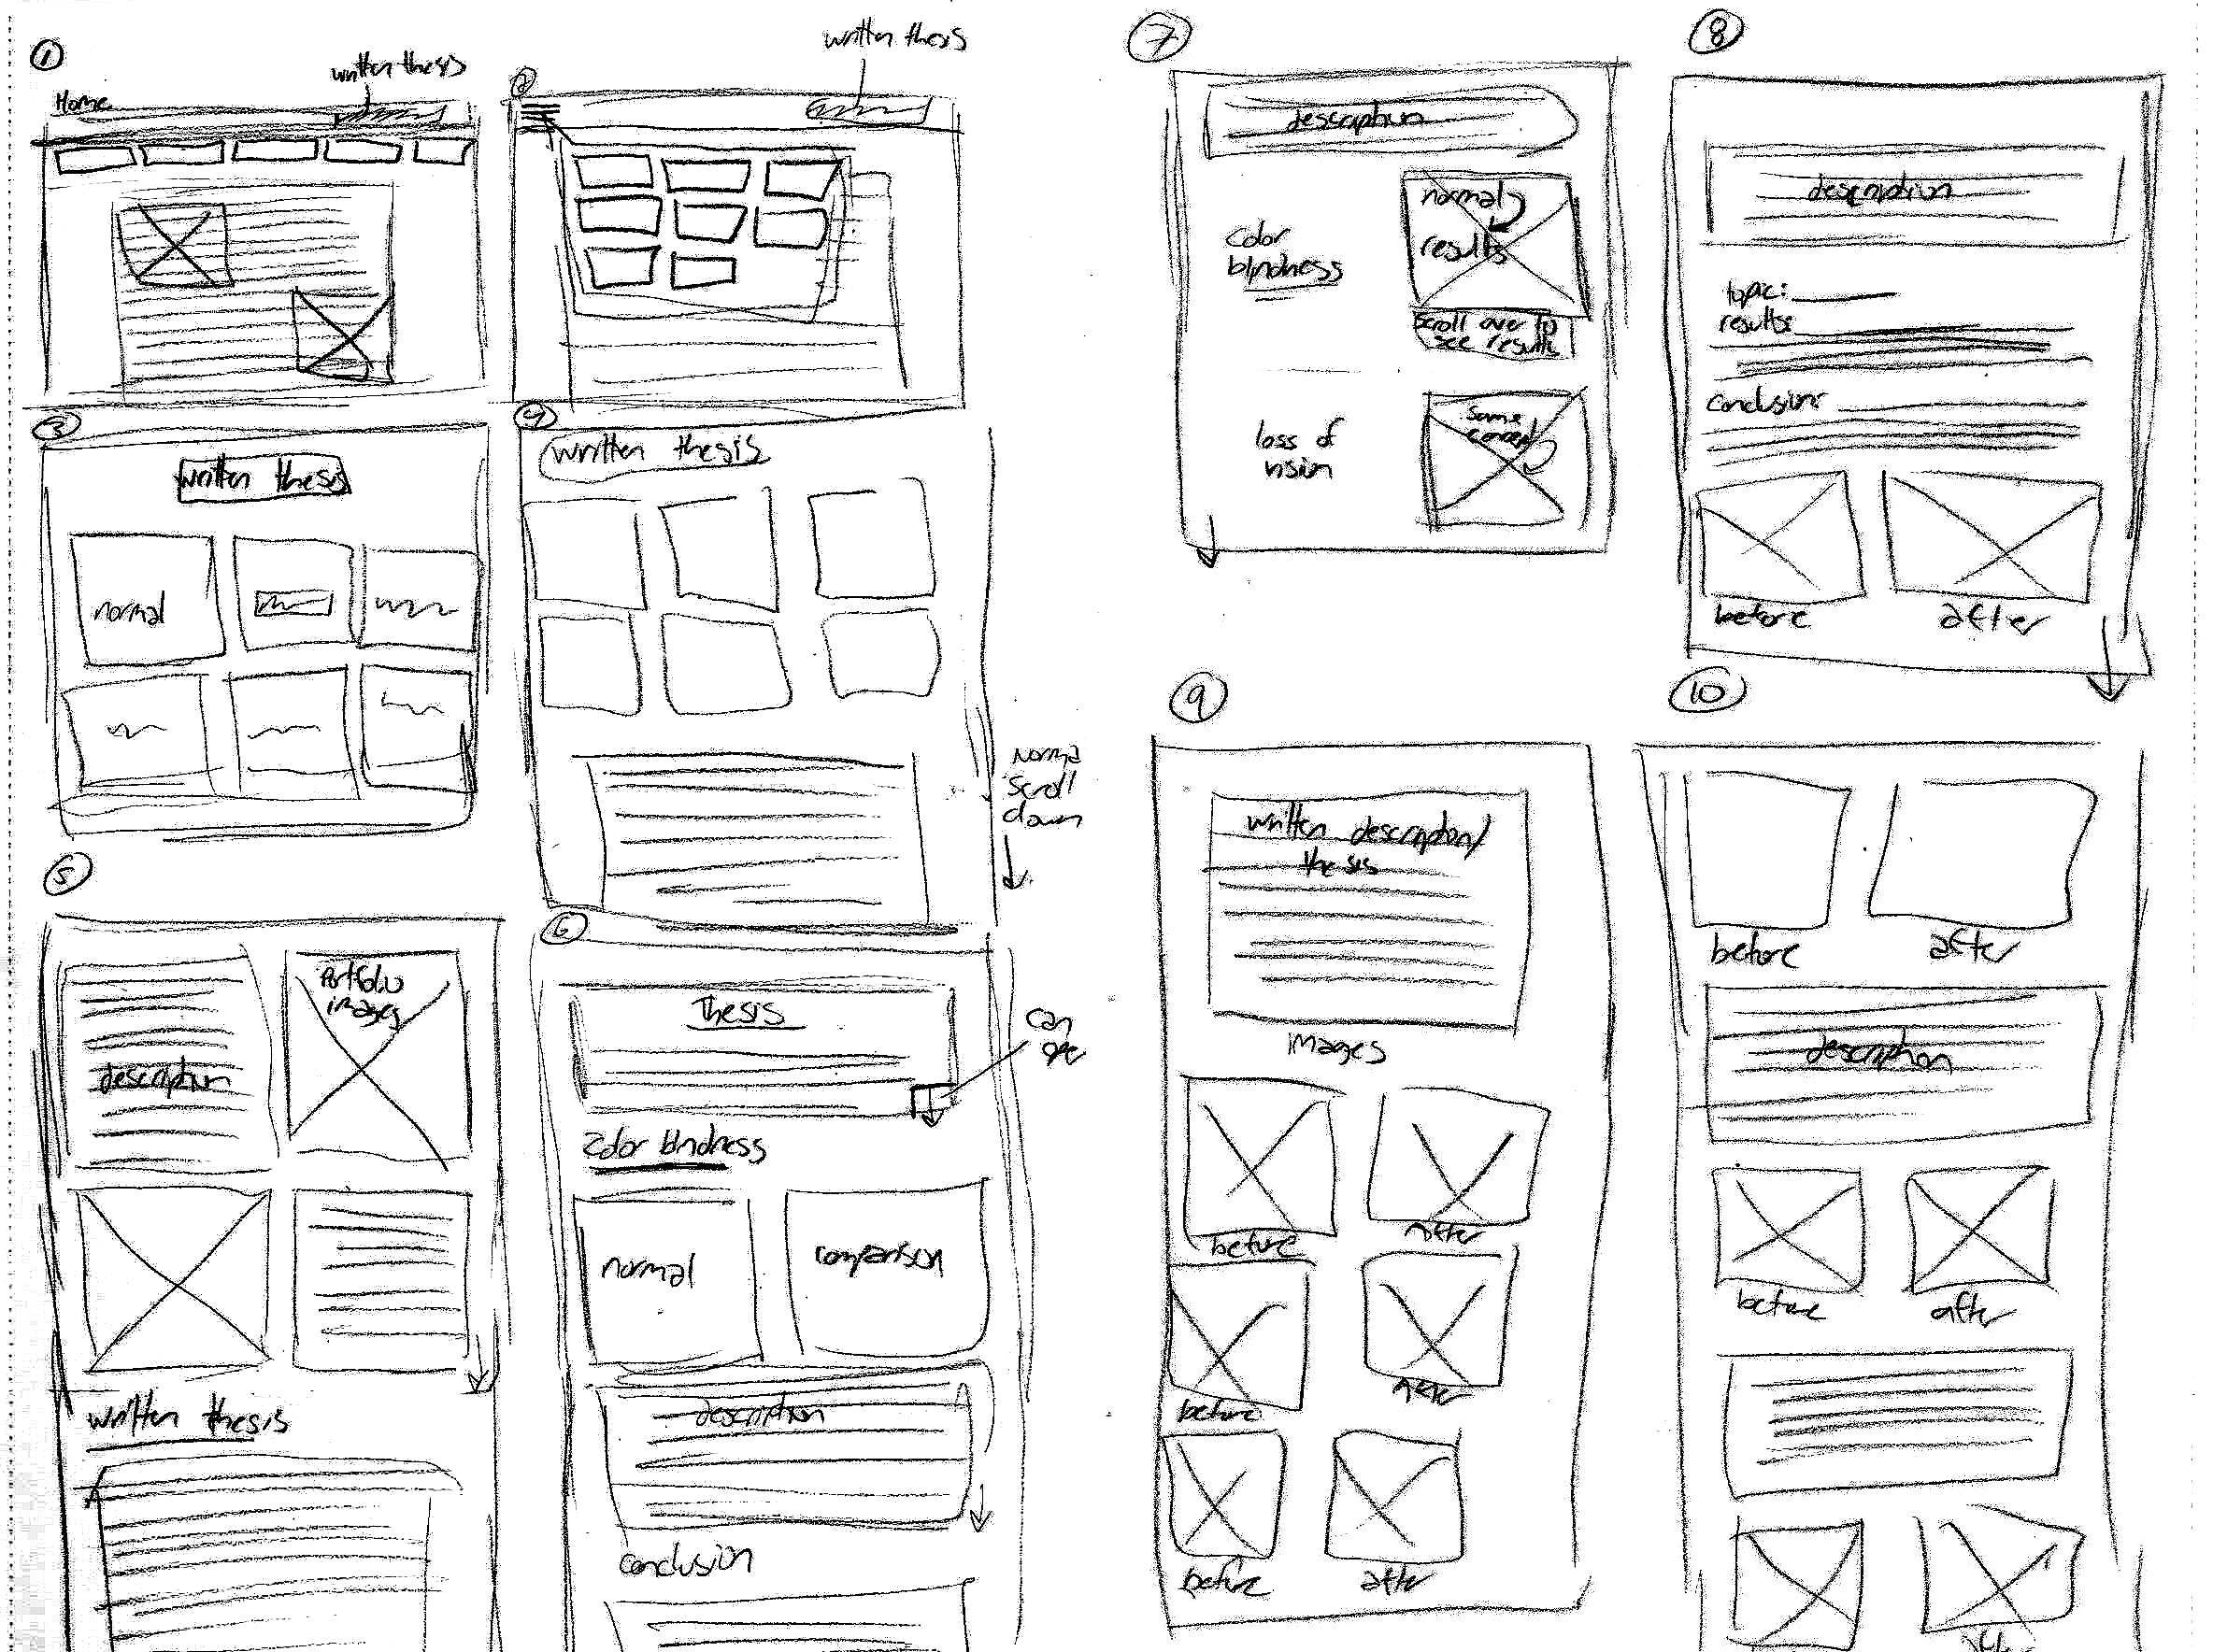 1
written thesis
Home
2
written thesis
3
written thesis
normal
4
written thesis
normal
scroll
down
5
portfolio
images
description
written thesis
6
Thesis
can
color blindness
normal
comparison
description
conclusion
7
description
color
blindness
normal
results
scroll over to
see results
loss of
vision
same
concept
8
description
topic:
results:
conclusion:
before
after
9
written description/
thesis
images
before
after
before
after
before
after
10
before
after
description
before
after